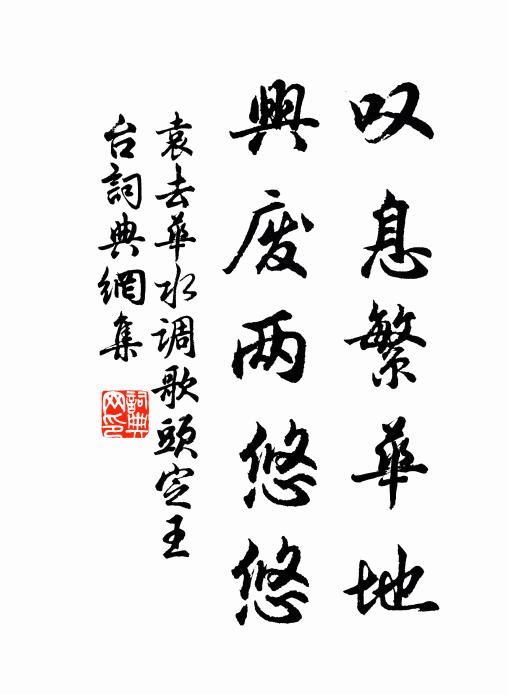 叹息繁华地
興废两悠悠
袁去華水调歌頭定王
台詞典網集
詞典网印